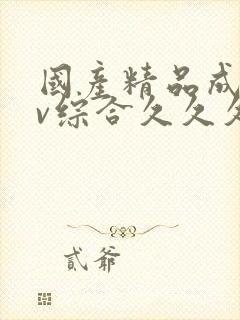 國产精品成
v综合久久久
貳爺